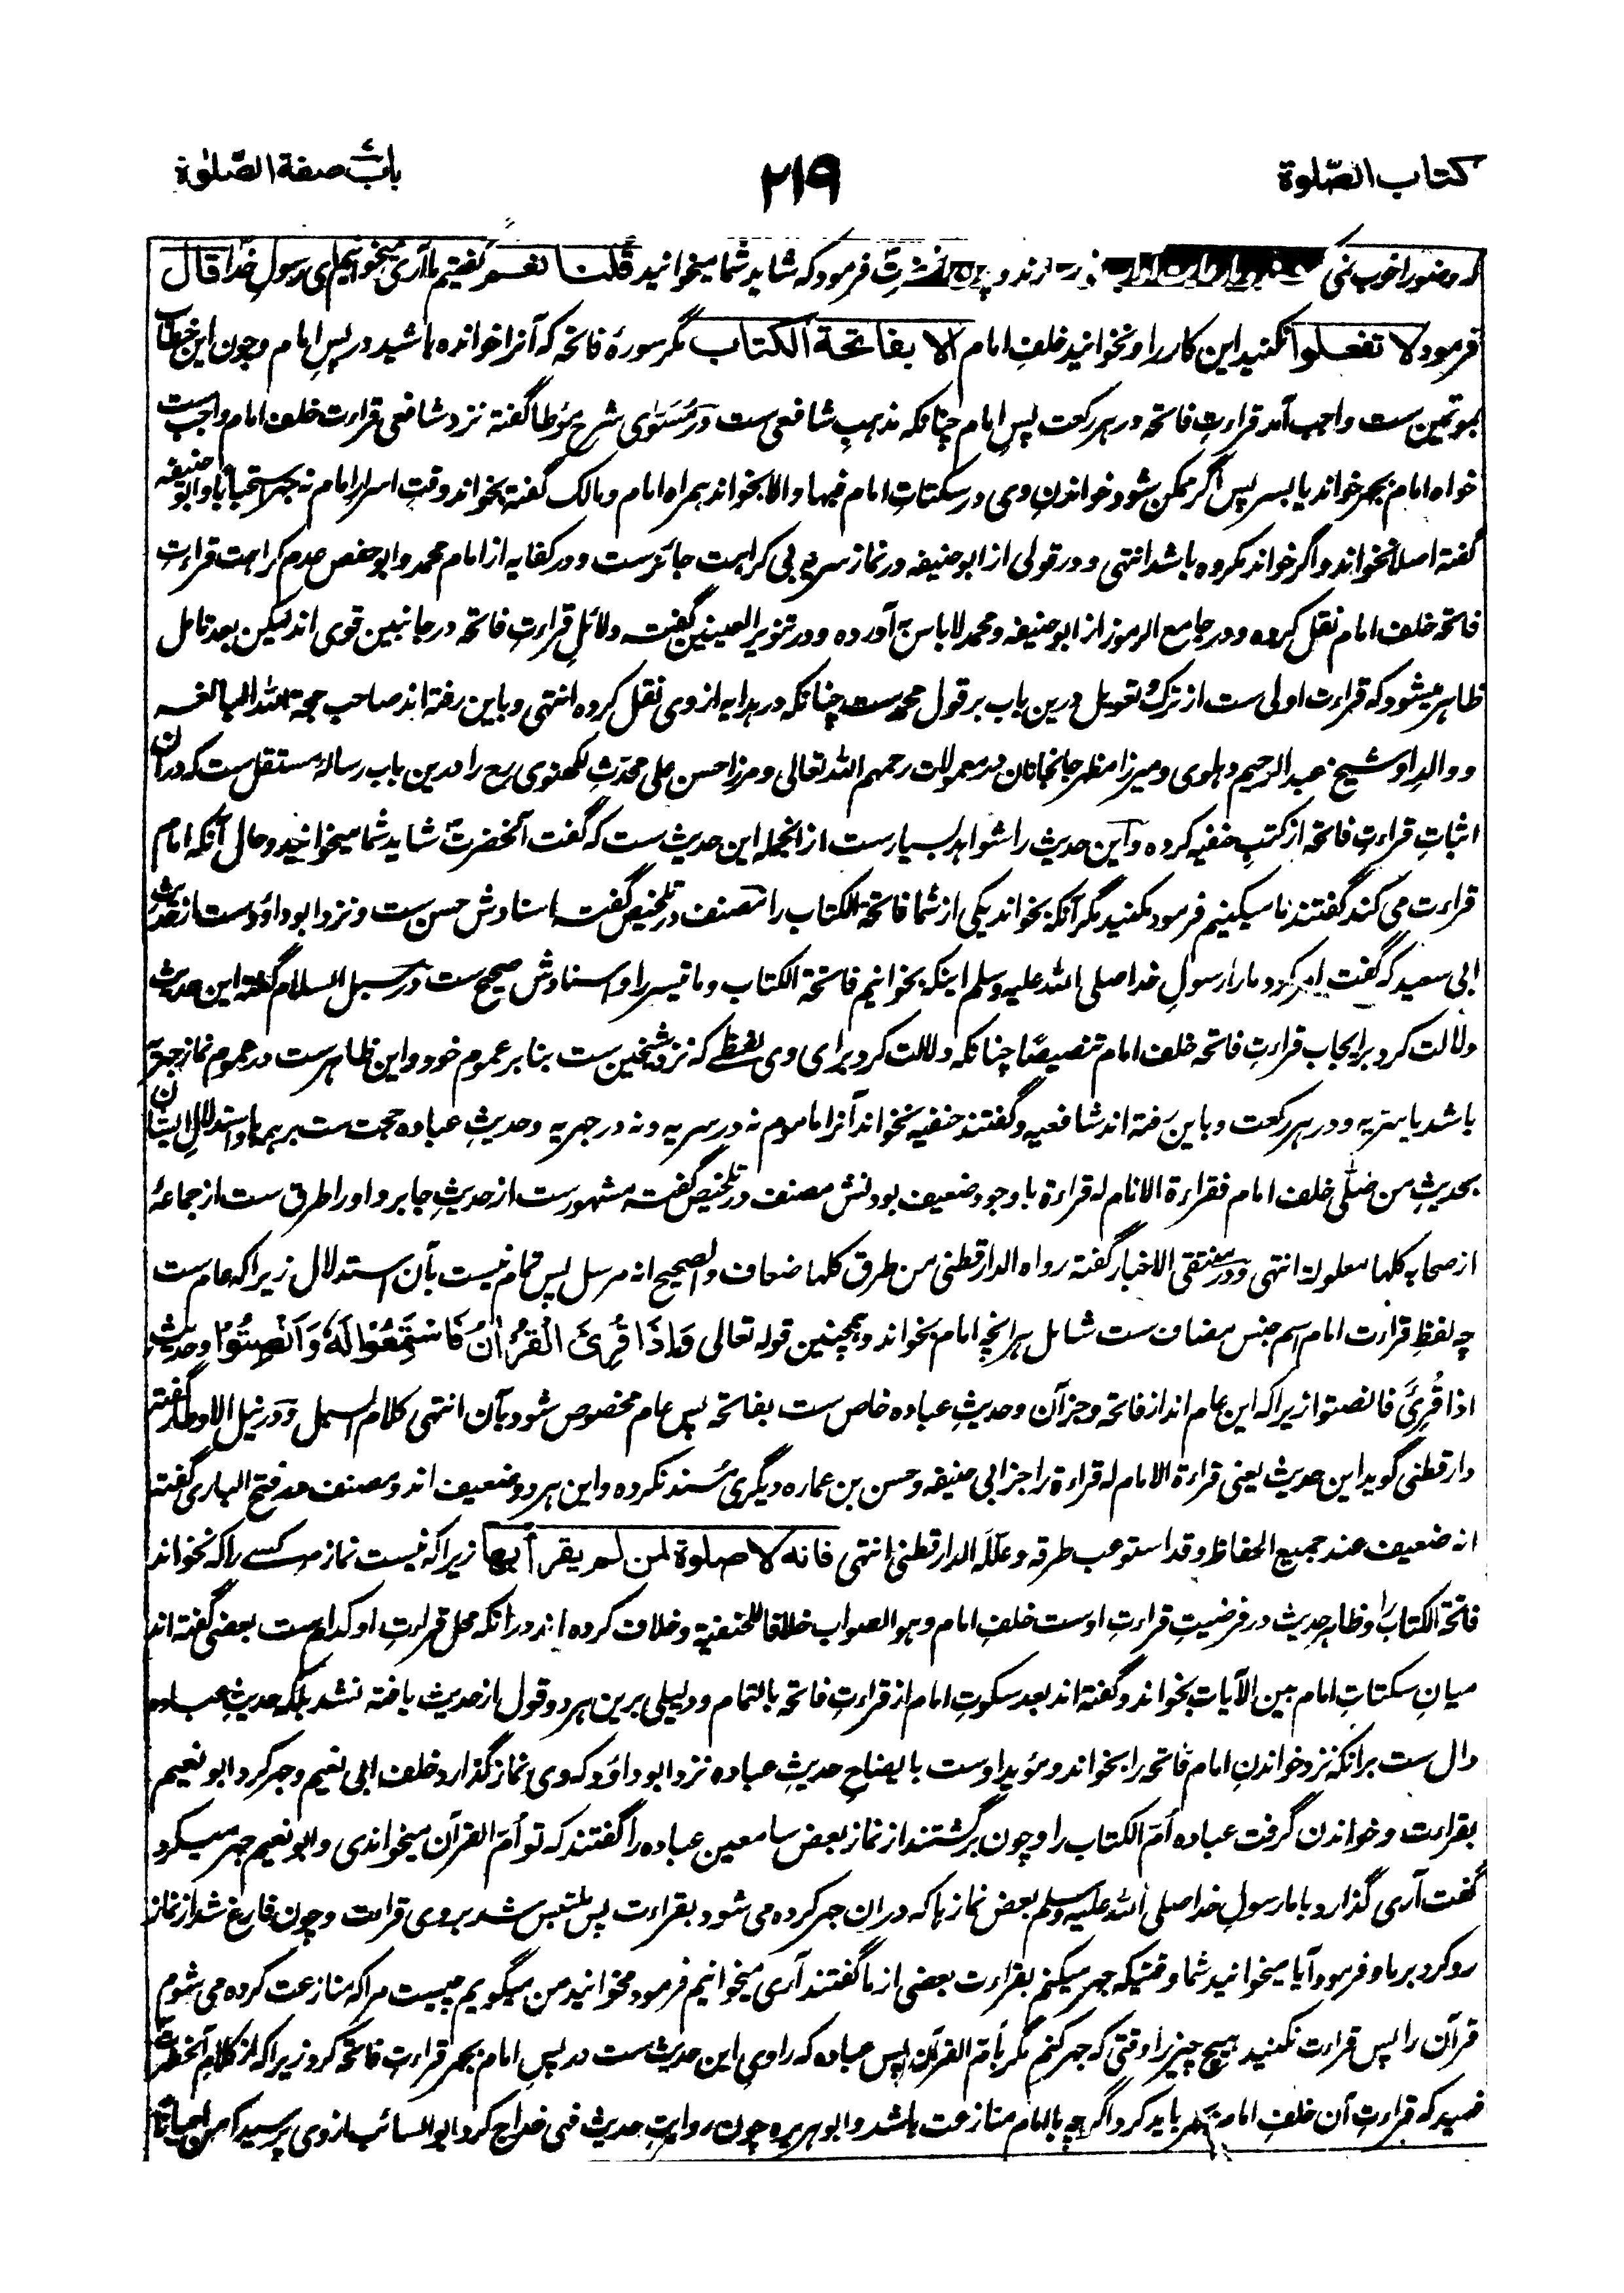 کتاب الصّلوة
۲۱۹
باب صفة الصّلوٰة
که وضو را خوب نمی فرمود که شاید شما میخوانید قلنا نعم گفتیم ما آری میخوانیم ای رسولِ خدا قال
فرمود لا تفعلوا نکنید این کار را و نخوانید خلفِ امام الا بفاتحة الکتاب مگر سورهٔ فاتحه که آنرا خوانده باشید در پسِ امام و چون این خطاب
بموتمین ست واجب آمد قراءتِ فاتحه در هر رکعت پسِ امام چنانکه مذهبِ شافعی ست و در مسوّی شرح مؤطا گفته نزد شافعی قراءت خلف امام واجب ست
خواه امام بجهر خواند یا بسر پس اگر ممکن شود خواندنِ وی در سکتاتِ امام فبها و الا بخواند همراه امام و مالک گفته بخواند وقتِ اسرارِ امام نه بجهر استحباباً و ابو حنیفه
گفته اصلا نخواند و اگر خواند مکروه باشد انتهی و در قولی از ابو حنیفه در نماز سریه بی کراهت جائز ست و در کفایه از امام محمد و ابو حفص عدم کراهت قراءتِ
فاتحه خلف امام نقل کرده و در جامع الرموز از ابو حنیفه و محمد لا باس به آورده و در تنویر العینین گفته دلائلِ قراءتِ فاتحه در جانبین قوی اند لیکن بعد تامل
ظاهر میشود که قراءت اولی ست از ترک و تعویل درین باب بر قول محمد ست چنانکه در هدایه از وی نقل کرده انتهی و باین رفته اند صاحب حجة الله البالغه
و والدِ او شیخ عبد الرحیم دهلوی و میرزا مظهر جانجانان در معمولات رحمهم الله تعالی و مرزا حسن علی محدّثِ لکهنوی رح را درین باب رسالهٔ مستقل ست که دران
اثباتِ قراءتِ فاتحه از کتبِ حنفیه کرده و این حدیث را شواهد بسیار ست از انجمله این حدیث ست که گفت آنحضرتؐ شاید شما میخوانید و حال آنکه امام
قراءت می کند گفتند ما میکنیم فرمود مکنید مگر آنکه بخواند یکی از شما فاتحة الکتاب را مصنف در تلخیص گفته اسنادش حسن ست و نزد ابو داؤد ست از حدیثِ
ابی سعید که گفت امر کرد ما را رسولِ خدا صلی الله علیه وسلم اینکه بخوانیم فاتحة الکتاب و ما تیسر را و اسنادش صحیح ست در سبل السلام گفته این حدیث
دلالت کرد بر ایجاب قراءتِ فاتحه خلف امام تنصیصًا چنانکه دلالت کرد برای وی لفظے که نزد شیخین ست بنا بر عموم خود و این ظاهر ست در عموم نماز جهریّه
باشد یا سرّیه و در هر رکعت و باین رفته اند شافعیه و گفتند حنفیه نخواند آنرا ماموم نه در سریه و نه در جهریه و حدیثِ عباده حجت ست بر همه و استدلالِ ایشان
بحدیثِ من صلّی خلف امام فقراءة الامام له قراءة با وجود ضعیف بودنش مصنف در تلخیص گفته مشهور ست از حدیثِ جابر و او را طرق ست از جماعهٔ
از صحابه کلها معلولة انتهی و در منتقی الاخبار گفته رواه الدار قطنی من طرق کلها ضعاف والصحیح انه مرسل پس تمام نیست بآن استدلال زیرا که عام ست
چه لفظِ قراءت امام اسم جنس مضاف ست شامل هر انچه امام بخواند و همچنین قوله تعالی وَاِذَا قُرِئَ الْقُرْاٰنُ فَاسْتَمِعُوْا لَهٗ وَاَنْصِتُوْا و حدیثِ
اذا قُرِئَ فانصتوا زیرا که این عام اند از فاتحه و جز آن و حدیثِ عباده خاص ست بفاتحه پس عام مخصوص شود بآن انتهی کلام السبل و در نیل الاوطار گفته
دار قطنی گوید این حدیث یعنی قراءة الامام له قراءة را جز ابی حنیفه و حسن بن عماره دیگری مُسند نکرده و این هر دو ضعیف اند و مصنف در فتح الباری گفته
انه ضعیف عند جمیع الحفاظ و قد استوعب طرقه و علّله الدار قطنی انتهی فانه لا صلوة لمن لم یقرأ بها زیرا که نیست نماز مر کسے را که نخواند
فاتحة الکتاب را و ظاهرِ حدیث در فرضیتِ قراءتِ اوست خلفِ امام و هو الصواب خلافا للحنفیة و خلاف کرده اند در انکه محل قراءتِ او کدام ست بعضی گفته اند
میانِ سکتاتِ امام بین الآیات بخواند و گفته اند بعد سکوتِ امام از قراءتِ فاتحه بالتمام و دلیلی برین هر دو قول از حدیث یافته نشد بلکه حدیثِ عباده
دال ست بر انکه نزد خواندنِ امام فاتحه را بخواند و مؤیدِ اوست بایضاح حدیثِ عباده نزد ابو داؤد که وی نماز گذارد خلف ابی نعیم و جهر کرد ابو نعیم
بقراءت و خواندن گرفت عباده اُمّ الکتاب را و چون برگشتند از نماز بعض سامعین عباده را گفتند که تو اُمّ القرآن میخواندی و ابو نعیم جهر میکرد
گفت آری گذارد با ما رسولِ خدا صلی الله علیه وسلم بعض نماز ها که دران جهر کرده می شود بقراءت پس ملتبس شد بروی قراءت و چون فارغ شد از نماز
رو کرد بر ما و فرمود آیا میخوانید شما وقتیکه جهر میکنم بقراءت بعضی از ما گفتند آری میخوانیم فرمود مخوانید من میگویم چیست مرا که منازعت کرده می شوم
قرآن را پس قراءت نکنید هیچ چیز را وقتی که جهر کنم مگر بأمّ القرآن پس عباده که راوی این حدیث ست در پسِ امام بجهر قراءتِ فاتحه کرد زیرا که از کلامِ آنحضرتؐ
فهمید که قراءتِ آن خلفِ امام باید کرد اگر چه با امام منازعت باشد و ابو هریره چون روایتِ حدیث کرد ابو السائب از وی پرسید که من احیانًا